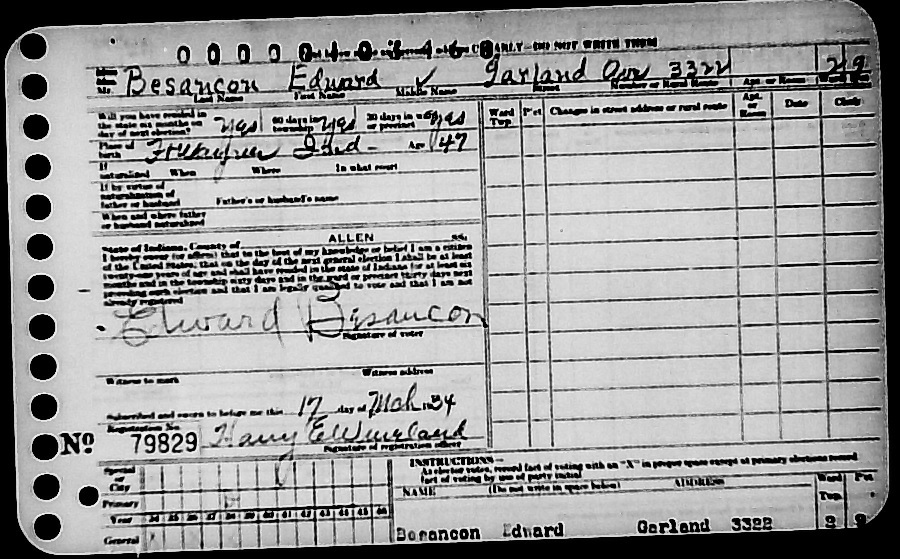 CLEARLY—DO NOT WRITE THEM
Besancon Edward ✓ Garland Ave 3322 2 9
Mr. Last Name First Name Middle Name Street Number or Rural Route Apt. or Room
Will you have resided in the state six months on day of next election? yes 60 days in township yes 30 days in or precinct yes
Place of birth Ft Wayne Ind- Age 47
If naturalized When Where In what court
If by virtue of naturalization of father or husband Father's or husband's name
When and where father or husband naturalized
State of Indiana, County of ALLEN ss.
I hereby swear (or affirm) that to the best of my knowledge or belief I am a citizen
of the United States; that on the day of the next general election I shall be at least
twenty-one years of age and shall have resided in the state of Indiana for at least six
months and in the township sixty days and in the ward or precinct thirty days next
preceding such election and that I am legally qualified to vote and that I am not
already registered
Edward Besancon
Signature of voter
Witness to mark Witness address
Subscribed and sworn to before me this 17 day of Mch 1934
Registration No
No 79829 Harry E Wineland
Signature of registration officer
Ward Twp. P'ct Changes in street address or rural route Apt. or Room Date Clerk
Special or City
Primary
Year 34 35 36 37 38 39 40 41 42 43 44 45 46
General
INSTRUCTIONS—
As elector votes, record fact of voting with an "X" in proper space except at primary elections record
fact of voting by use of party initial
NAME (Do not write in space below) ADDRESS Ward Twp. P'ct
Besancon Edward Garland 3322 2 9